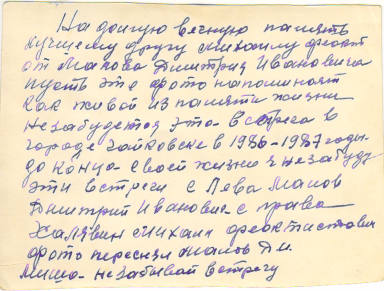 На долгую вечную память
лучшему другу Михаилу Феокт
от Малова Дмитрия Ивановича
пусть это фото напоминает
как живой из памяти жизни
незабудется эта встреча в
городе Чайковске в 1986-1987 годы.
до конца своей жизни я незабуду
эти встречи с Лева Малов
Дмитрий Иванович с права
Халявин Михаил Феоктистович
фото переснял Малов Д.И.
Миша незабывай встречу